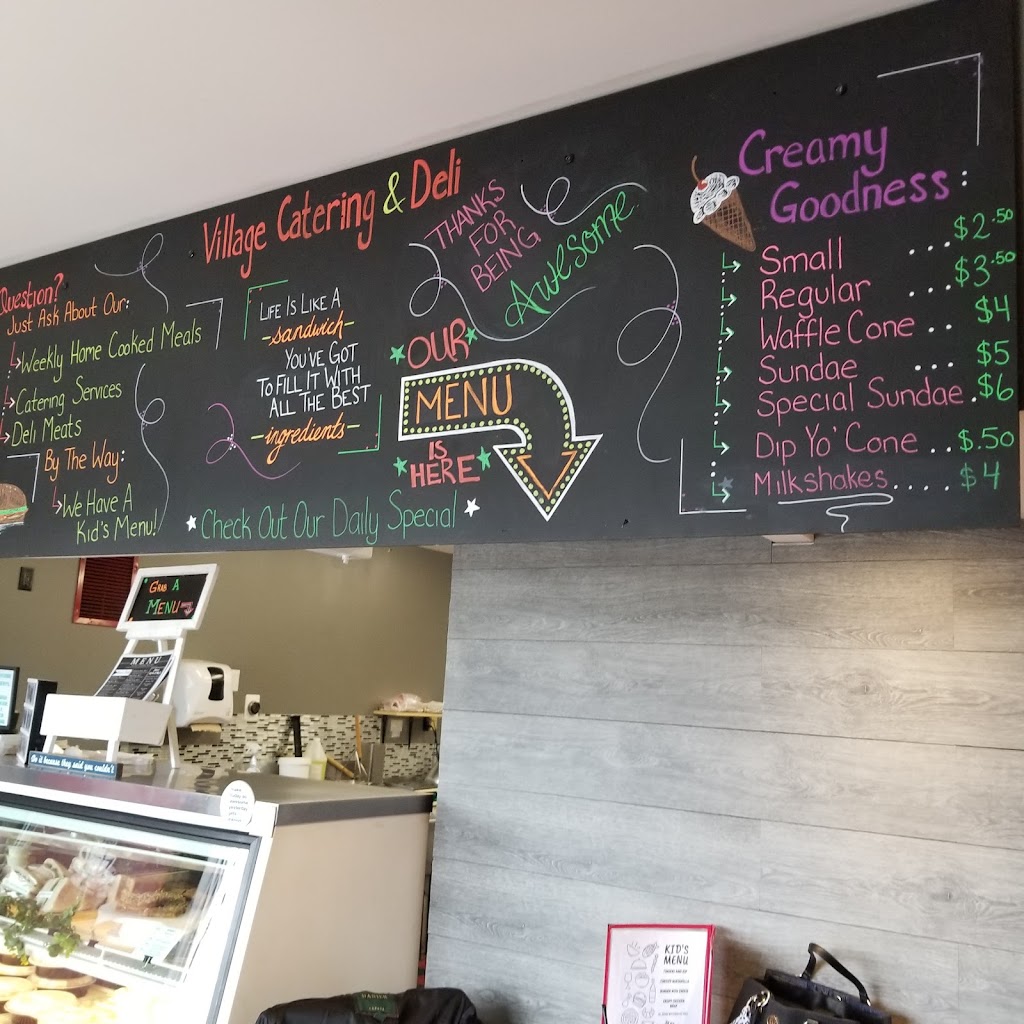 Village Catering & Deli
Question?
Just Ask About Our:
Weekly Home Cooked Meals
Catering Services
Deli Meats
By The Way:
We Have A
Kid's Menu!
Life Is Like A
-sandwich-
You've Got
To Fill It With
All The Best
-ingredients-
Thanks
For
Being
Awesome
Our
Menu
Is
Here
Check Out Our Daily Special
Creamy
Goodness:
Small ... $2.50
Regular ... $3.50
Waffle Cone .. $4
Sundae ... $5
Special Sundae . $6
Dip Yo' Cone .. $.50
Milkshakes..... $4
Grab A
Menu
MENU
Do it because they said you couldn't
KID'S
MENU